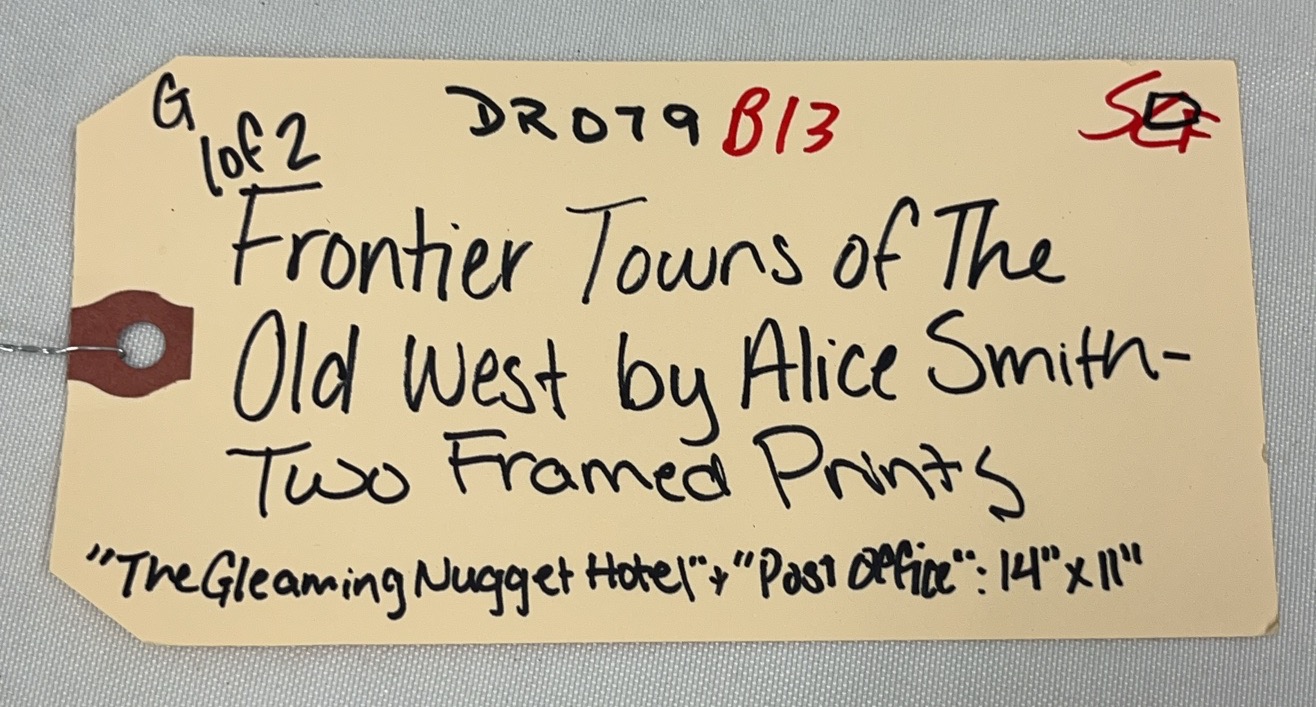 G
1 of 2
DR079 B13
Frontier Towns of The
Old West by Alice Smith-
Two Framed Prints
"The Gleaming Nugget Hotel" + "Post Office": 14" x 11"